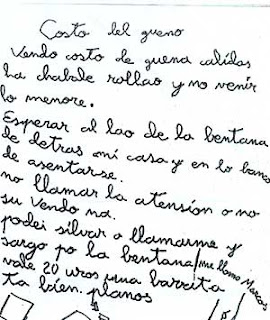 Costo del gueno
Vendo costo de guena calidas
ha chabale rollao y no venir
lo menore.
Esperar al lao de la bentana
de detras mi casa y en lo banco
de asentarse.
no llamar la atension o no
su vendo na.
podei silvar o llamarme y
sargo po la bentana/me llamo Marcos
vale 20 uros una barrita
ta bien. planos